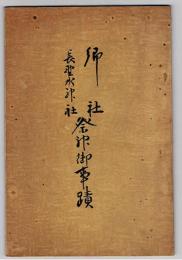 郷社
長野水神社
祭神御事蹟